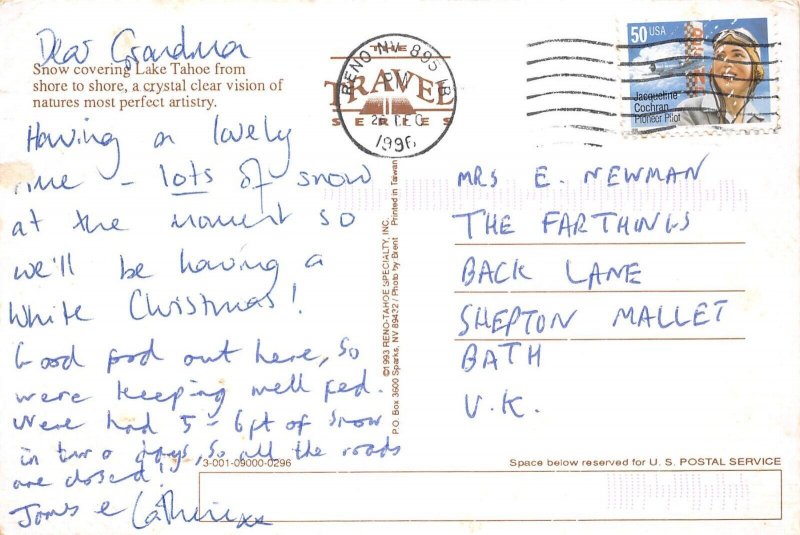 Dear Grandma
Snow covering Lake Tahoe from
shore to shore, a crystal clear vision of
natures most perfect artistry.
Having a lovely
time – lots of snow
at the moment so
we'll be having a
White Christmas!
Good food out here, so
were keeping well fed.
Were had 5 - 6ft of snow
in two days, so all the roads
are closed!
James & Catherine xx
3-001-09000-0296
THE
TRAVEL
SERIES
RENO NV 895
PM
1996
©1993 RENO-TAHOE SPECIALTY, INC.
P.O. Box 3600 Sparks, NV 89432 / Photo by Brent
Printed in Taiwan
50 USA
Jacqueline
Cochran
Pioneer Pilot
MRS E. NEWMAN
THE FARTHINGS
BACK LANE
SHEPTON MALLET
BATH
U.K.
Space below reserved for U.S. POSTAL SERVICE